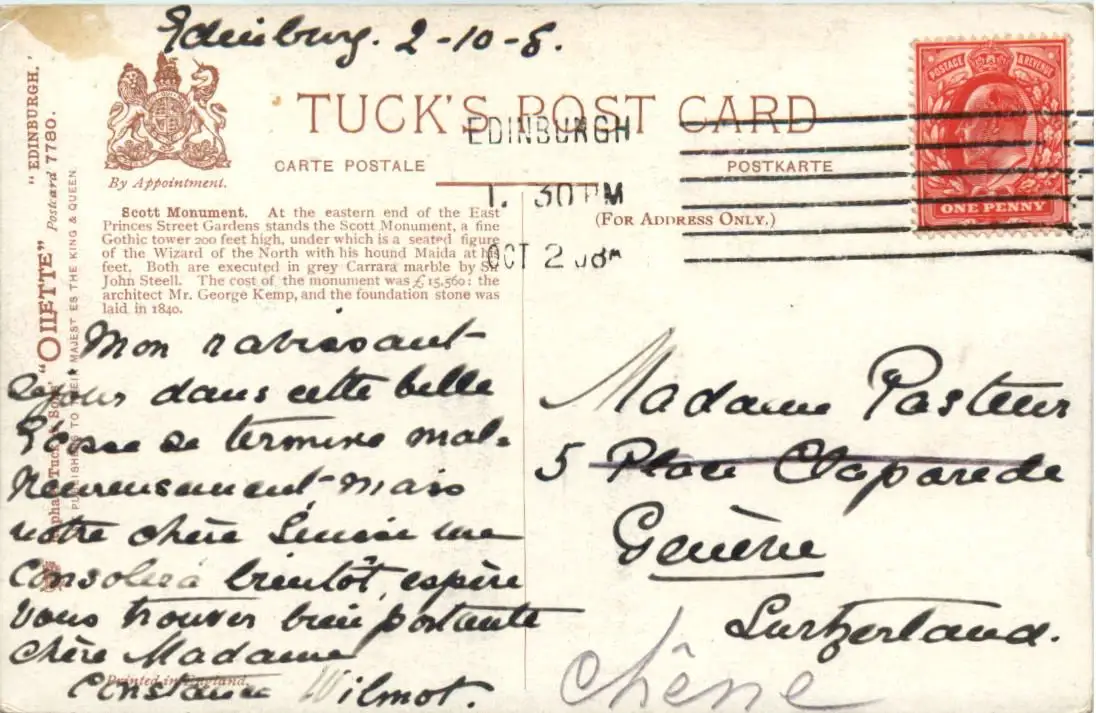 Edinburg. 2-10-8.
TUCK'S POST CARD
CARTE POSTALE
POSTKARTE
By Appointment.
(FOR ADDRESS ONLY.)
EDINBURGH
1. 30 PM
OCT 2 08
POSTAGE & REVENUE
ONE PENNY
Scott Monument. At the eastern end of the East
Princes Street Gardens stands the Scott Monument, a fine
Gothic tower 200 feet high, under which is a seated figure
of the Wizard of the North with his hound Maida at his
feet. Both are executed in grey Carrara marble by Sir
John Steell. The cost of the monument was £15,560: the
architect Mr. George Kemp, and the foundation stone was
laid in 1840.
"OILETTE" "EDINBURGH."
Postcard 7780.
PUBLISHERS TO THEIR MAJESTIES THE KING & QUEEN.
Mon ravissant
séjour dans cette belle
Écosse se termine mal-
heureusement mais
notre chère Suisse me
consolera bientôt, espère
vous trouver bien portante
chère Madame
Constance Wilmot.
Printed in England.
Madame Pasteur
5 Place Claparede
Genève
Switzerland.
Chêne